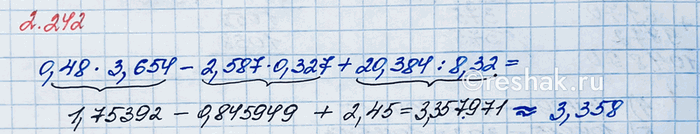 2.242
0,48 · 3,654 − 2,587 · 0,327 + 20,384 : 8,32 =
1,75392 − 0,845949 + 2,45 = 3,357971 ≈ 3,358
reshak.ru